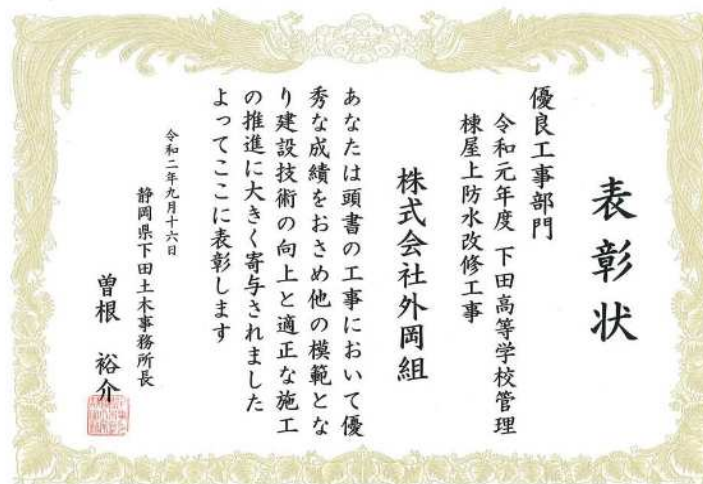 表彰状
優良工事部門
令和元年度 下田高等学校管理
棟屋上防水改修工事
株式会社外岡組
あなたは頭書の工事において優
秀な成績をおさめ他の模範とな
り建設技術の向上と適正な施工
の推進に大きく寄与されました
よってここに表彰します
令和二年九月十六日
静岡県下田土木事務所長
曽根 裕介